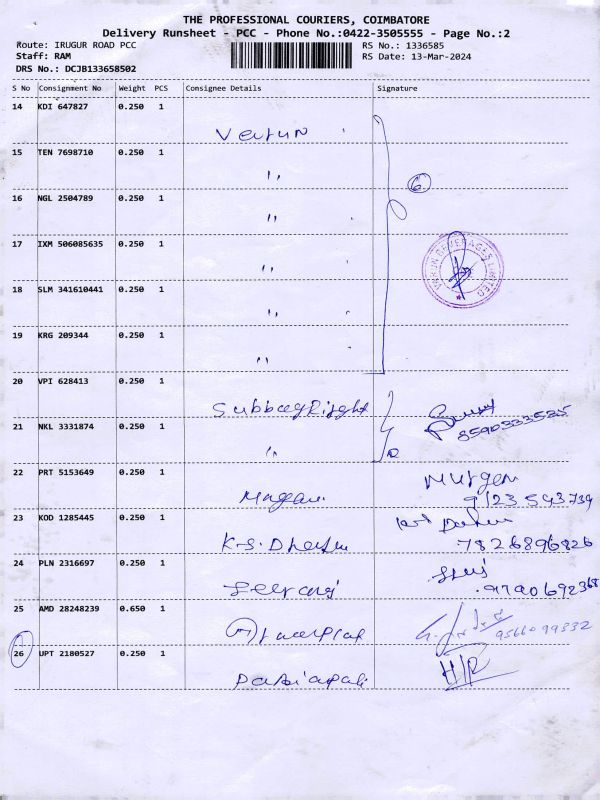 THE PROFESSIONAL COURIERS, COIMBATORE
Delivery Runsheet - PCC - Phone No.:0422-3505555 - Page No.:2
Route: IRUGUR ROAD PCC RS No.: 1336585
Staff: RAM RS Date: 13-Mar-2024
DRS No.: DCJB133658502
S No Consignment No Weight PCS Consignee Details Signature
14 KDI 647827 0.250 1
15 TEN 7698710 0.250 1
,,
6
16 NGL 2504789 0.250 1
,,
17 IXM 506085635 0.250 1
,,
VARUN BEVERAGES LIMITED
18 SLM 341610441 0.250 1
,,
19 KRG 209344 0.250 1
,,
20 VPI 628413 0.250 1
21 NKL 3331874 0.250 1
,,
22 PRT 5153649 0.250 1
Murgan
9123593739
23 KOD 1285445 0.250 1
7826896826
24 PLN 2316697 0.250 1
9790692368
25 AMD 28248239 0.650 1
9566099332
26 UPT 2180527 0.250 1
H/R